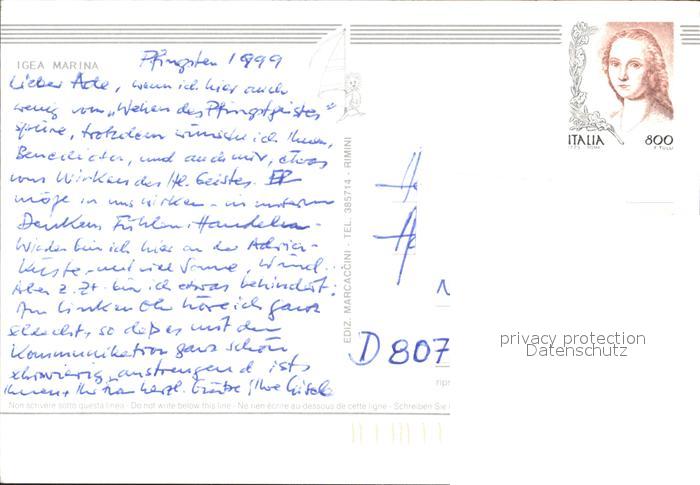 IGEA MARINA
Pfingsten 1999
Lieber Ade, wenn ich hier auch
wenig vom „Wehen des Pfingstgeistes"
spüre, trotzdem wünsche ich Ihnen,
Benedicten, und auch mir, etwas
vom Wirken des Hl. Geistes. Er
möge in uns wirken - in unserem
Denken, Fühlen, Handeln.
Wieder bin ich hier an der Adria-
küste - mit viel Sonne, Wind..
Aber z. Zt. bin ich etwas behindert:
Am linken Ohr höre ich ganz
schlecht, so daß es mit der
Kommunikation ganz schön
schwierig, anstrengend ist.
Ihnen + Ihr herzl. Grüße, Ihre Gisela
Non scrivere sotto questa linea - Do not write below this line - Ne rien écrire au-dessous de cette ligne - Schreiben Sie
EDIZ. MARCACCINI - TEL. 385714 - RIMINI
ITALIA 800
D 807
ripr
privacy protection
Datenschutz